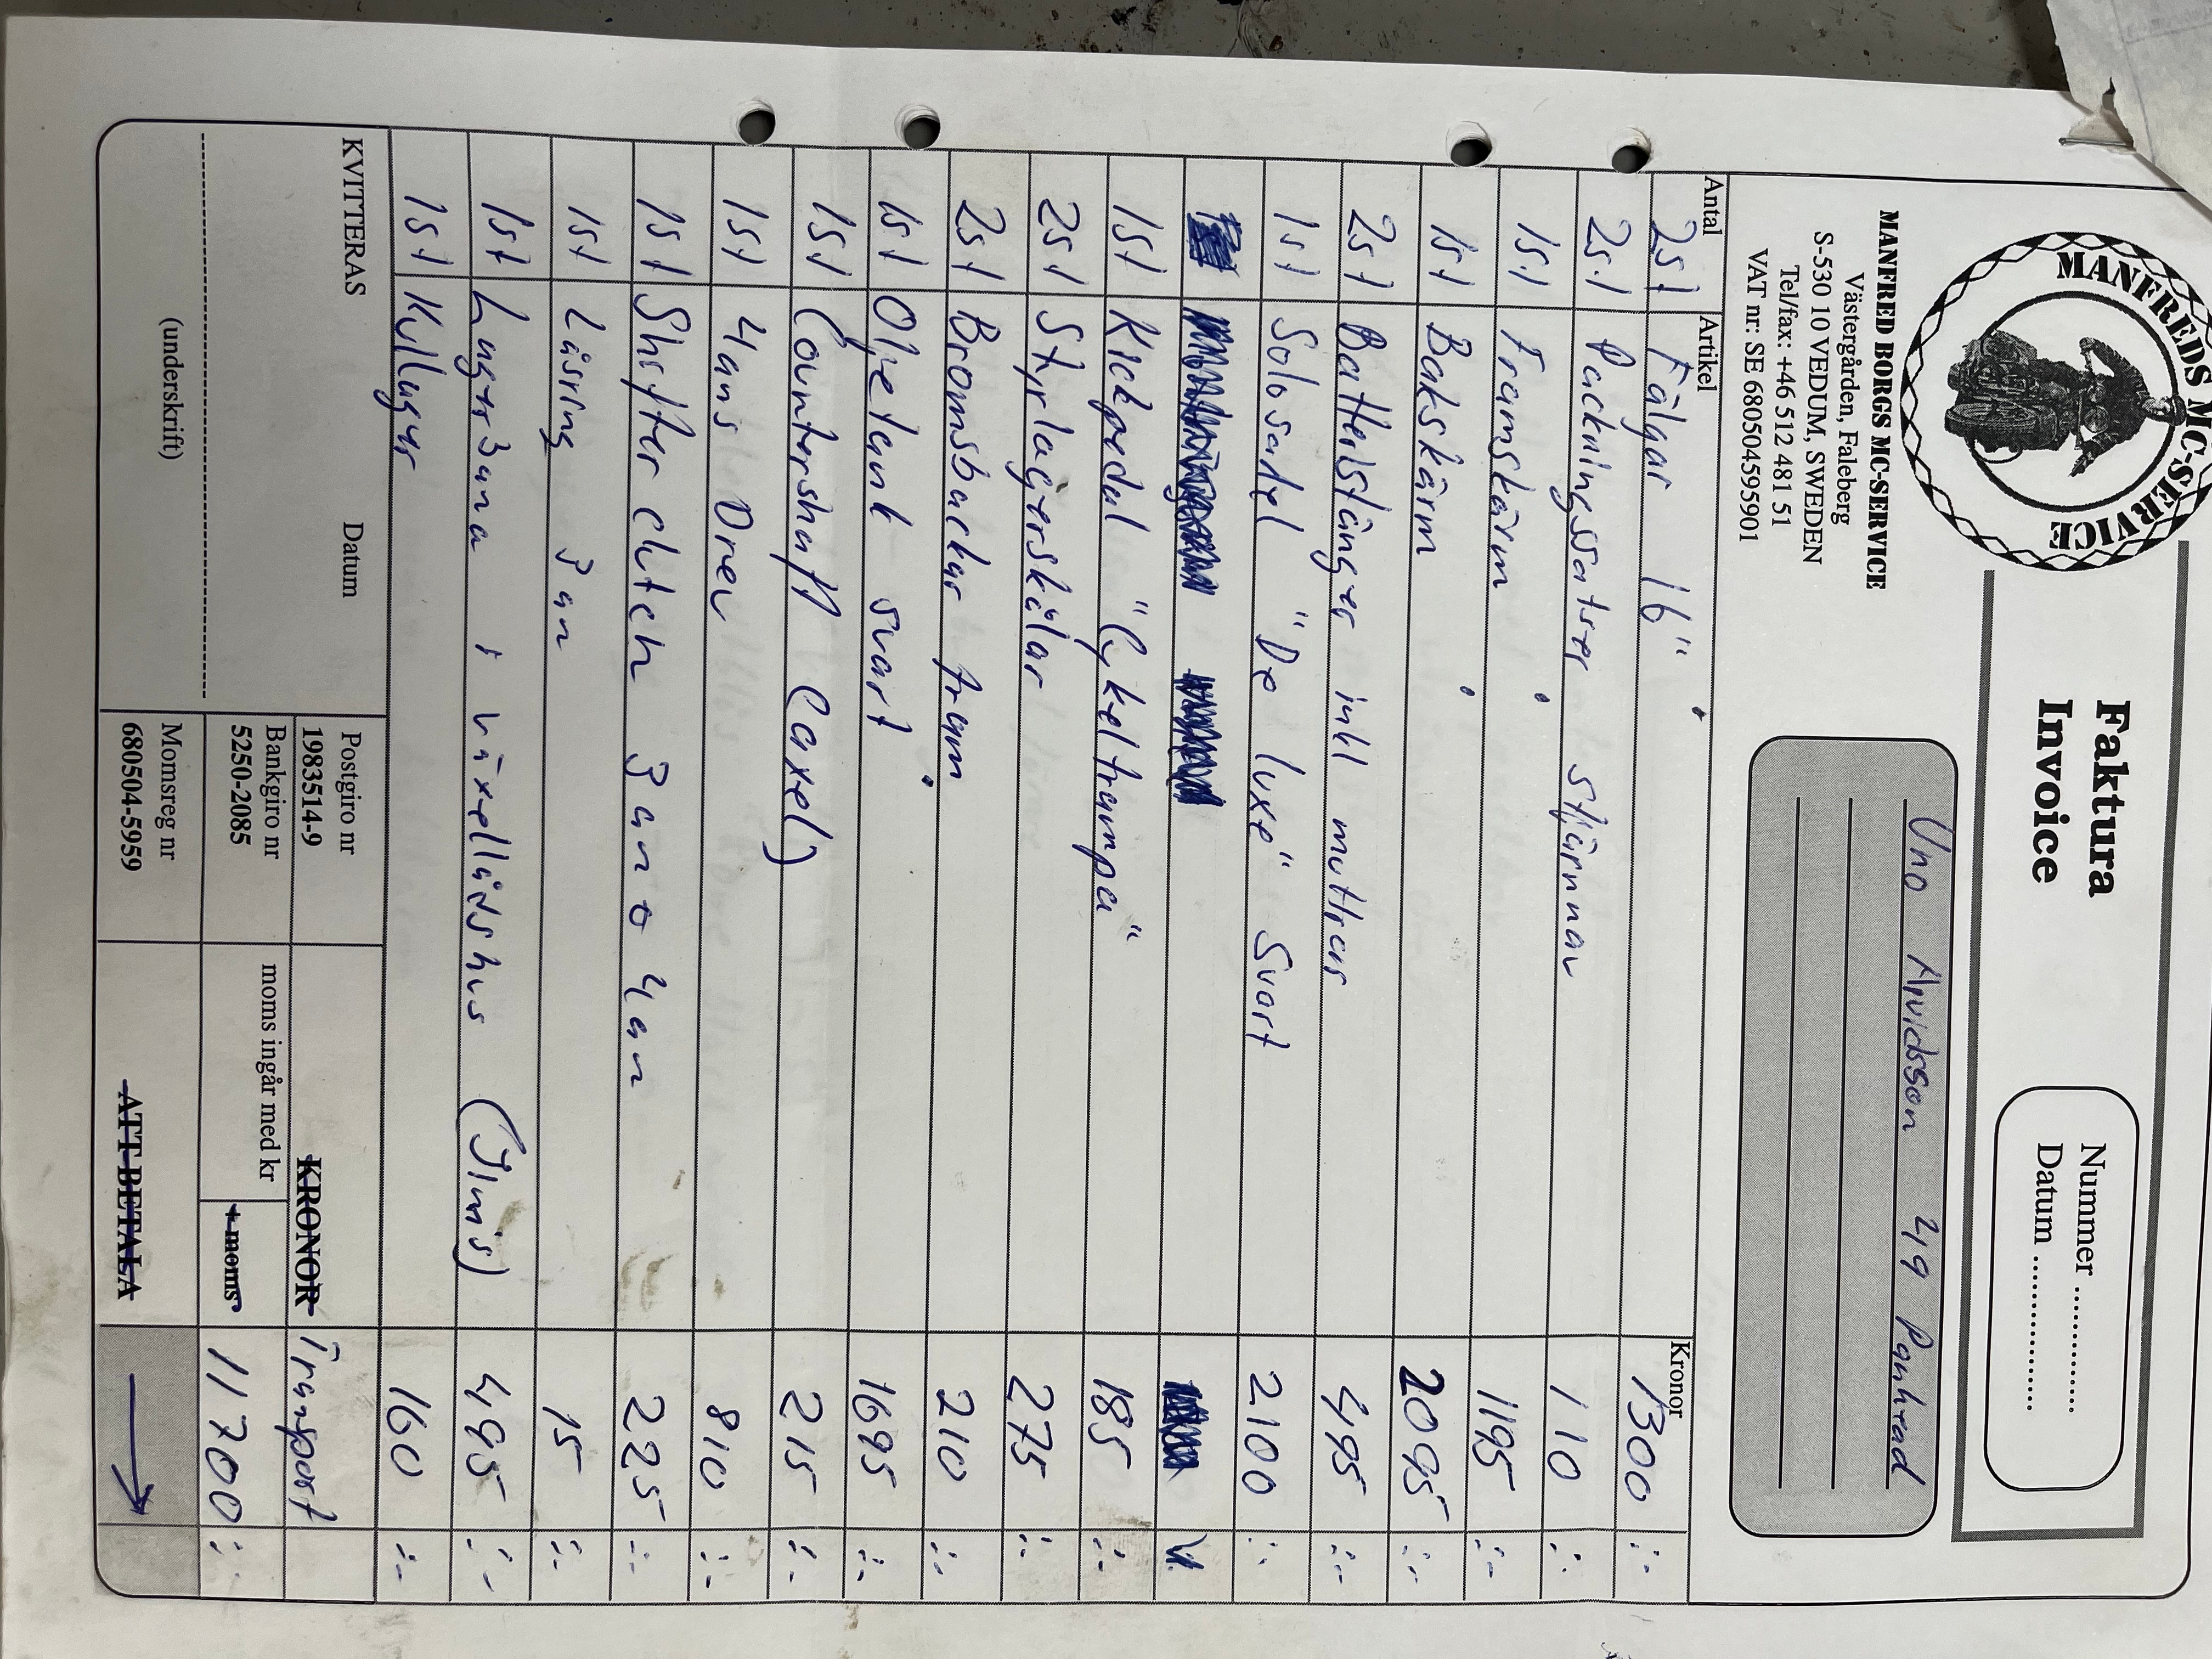 MANFREDS MC-SERVICE
Faktura
Invoice
Nummer ..............
Datum ................
MANFRED BORGS MC-SERVICE
Västergården, Faleberg
S-530 10 VEDUM, SWEDEN
Tel/fax: +46 512 481 51
VAT nr: SE 680504595901
Uno Arvidsson 49 Panhead
Antal Artikel Kronor
2st Fälgar 16" 1300 :-
2st Packningssatser stjärnnav 110 :-
1st Framskärm 1195 :-
1st Bakskärm 2095 :-
2st Batteristänger inkl muttrar 495 :-
1st Solosadel "De luxe" Svart 2100 :-
1st Kickpedal "Cykeltrampa" 185 :-
2st Styrlagerskålar 275 :-
2st Bromsbackar fram 210 :-
1st Oljetank svart 1695 :-
1st Countershaft (axel) 215 :-
1st 4ans Drev 810 :-
1st Shifter clutch 3an o 4an 225 :-
1st Låsring 3an 15 :-
1st Lagerbana i växellådshus (Jims) 495 :-
1st Kullager 160 :-
KVITTERAS Datum
Postgiro nr
1983514-9
KRONOR Transport
Bankgiro nr
5250-2085
moms ingår med kr + moms 11700 :-
(underskrift)
Momsreg nr
680504-5959
ATT BETALA